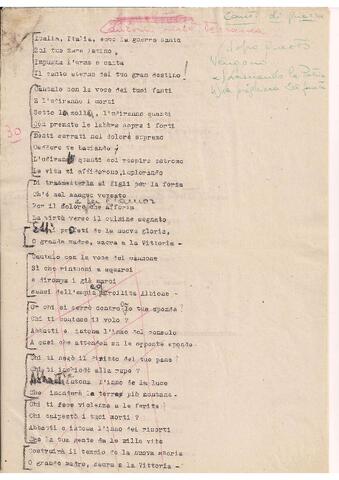 Canti di guerra
Italia, Italia, ecco la guerra santa
Sul tuo mare latino,
Impugna l'arma e canta
Il canto eterno del tuo gran destino!
dopo questo
Cantalo con la voce dei tuoi fanti
E l'udiranno i morti
Sotto le zolle, l'udiranno quanti
Con premuto le labbra sopra i forti
30
Denti serrati nel dolore supremo
Caddero te baciando;
L'udiranno quanti col respiro estremo
La vita ti affidarono, implorando
Di trasmetterla ai figli per la forza
Ch'è nel sangue versato
Per il dolore che afforza
La virtù verso il culmine segnato
Dai profeti de la nuova gloria,
O grande madre, sacra a la Vittoria-
Cantalo con la voce del cannone
Sì che rintuoni e squarci
e dirompa i già marci
sensi dell'empia Albione-
Or chi si serrò contro tue sponde?
Chi ti contese il volo?
Abbatti e intona l'inno del consolo
A quei che attendon su le opposte sponde-
Chi ti negò il diritto del tuo pane?
Chi ti inchiodò alla rupe?
Abbatti intona l'inno de la luce
Che incuterà la terra più lontana-
Chi ti fece violenza a le ferite?
Chi calpestò i tuoi morti?
Abbatti e intona l'inno dei risorti
Che la tua gente da le mille vite
Costruirà il tempio de la nuova storia
O grande madre, sacra a la Vittoria-